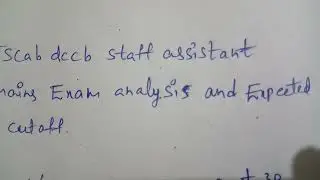 TScab dccb staff assistant
mains Exam analysis and Expected
cutoff.